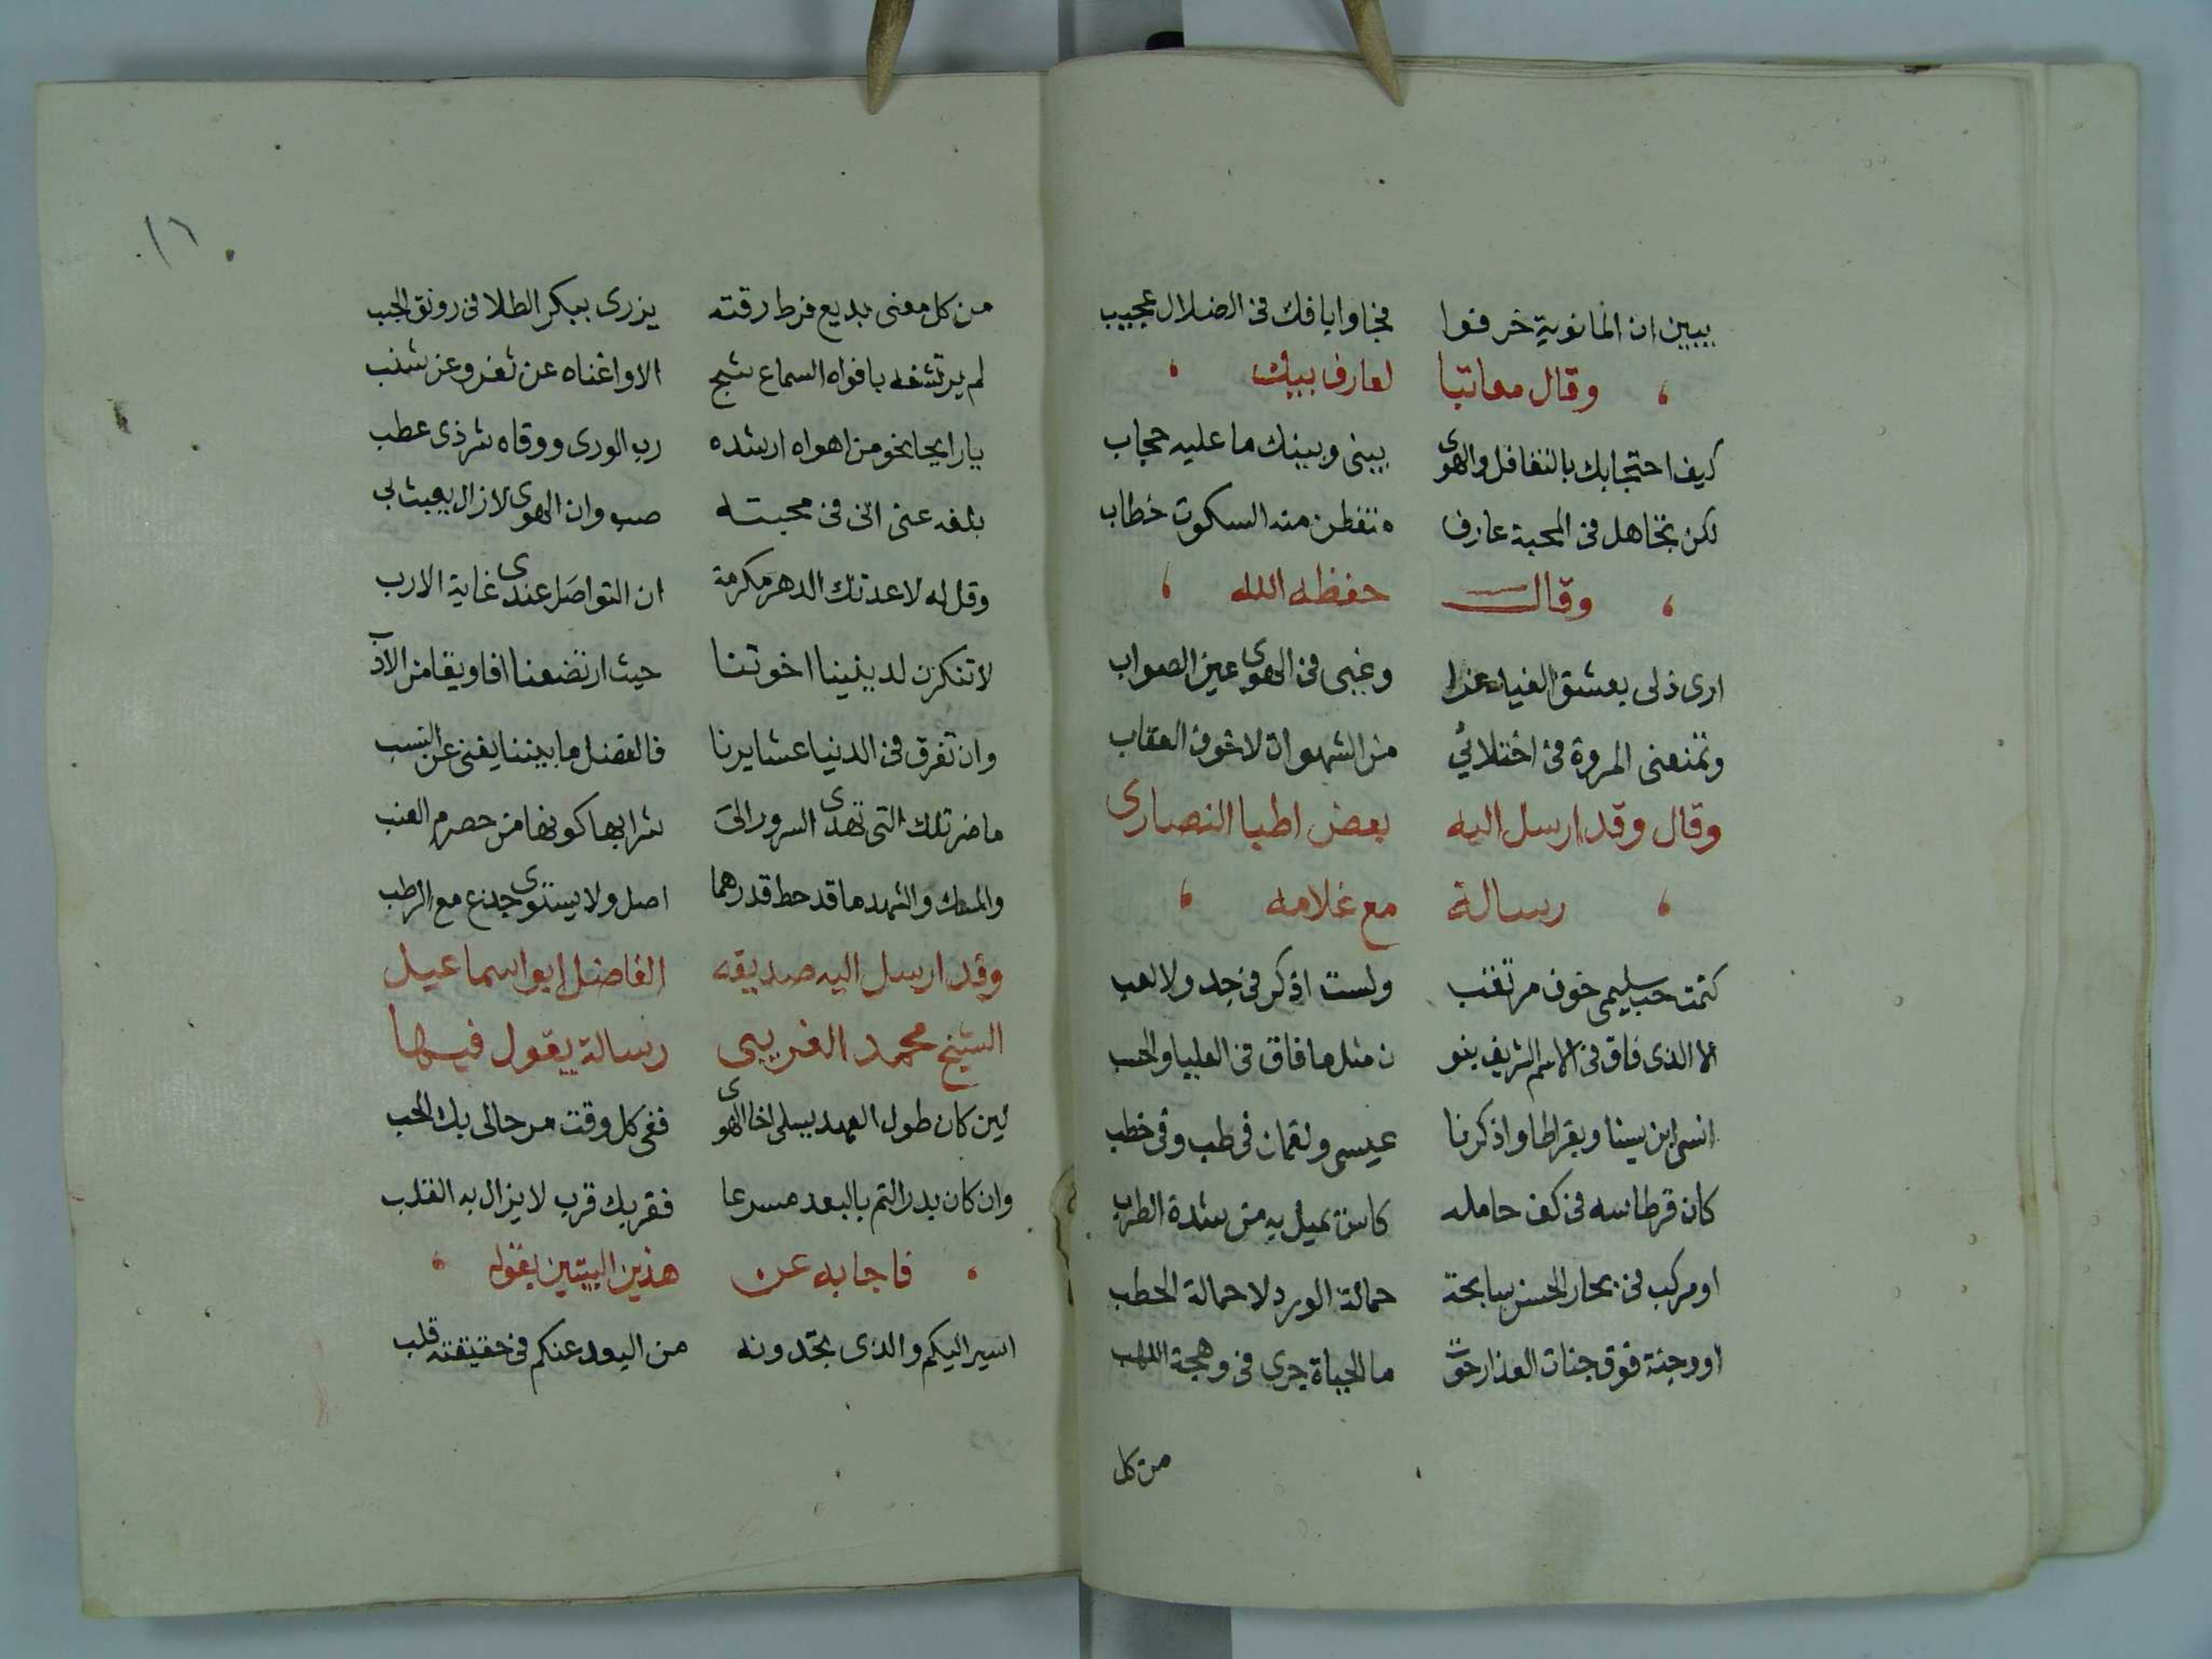 يبين ان المانوية خرفوا فجاوا بافك فى الضلال عجيب
، وقال معاتبا لعارف بيك ،
كيف احتجابك بالتغافل والهوى بينى وبينك ما عليه حجاب
لكن تجاهل فى المحبة عارف متفطن منه السكوت خطاب
، وقال حفظه الله ،
ارى ذلى بعشق الغيد عزا وغيى فى الهوى عين الصواب
وتمنعنى المروة فى اختلائي من الشهوات لا خوف العقاب
وقال وقد ارسل اليه بعض اطبا النصارى
، رسالة مع غلامه ،
كتمت حب سليمى خوف مرتقب ولست اذكر فى جد ولا لعب
الا الذى فاق فى الاسم الشريف بنو ن مثل ما فاق فى العليا والحسب
انسى ابن سينا وبقراطا واذكرنا عيسى ولقمان فى طب وفى خطب
كان قرطاسه فى كف حامله كاس تميل به من شدة الطرب
او مركب فى بحار الحسن سابحة حمالة الورد لا حمالة الحطب
او وجنة فوق جنات العذار حوت ما الحياة جرى فى وهجة اللهب
من كل
١٦
من كل معنى بديع فرط رقته يزرى ببكر الطلا فى رونق الحبب
لم يرتشفه بافواه السماع شج الا واغناه عن ثغر وعن شنب
يا رايحا نحو من اهواه ارشده رب الورى ووقاه شر ذى عطب
بلغه عنى انى فى محبته صب وان الهوى لازال يعبث بى
وقل له لا عدتك الدهر مكرمة ان التواصل عندى غاية الارب
لا تنكرن لدينينا اخوتنا حيث ارتضعنا افاويقا من الادب
وان تفرق فى الدنيا عشايرنا فالفضل ما بيننا يغنى عن النسب
ما ضر تلك التى تهدى السرور الى شرابها كونها من حصرم العنب
والمسك والشهد ما قد حط قدرهما اصل ولا يستوى جذع مع الرطب
وقد ارسل اليه صديقه الفاضل ابو اسماعيل
الشيخ محمد الغريبى رسالة يقول فيها
لين كان طول العهد يسلى اخا الهوى ففى كل وقت مر حالى بك الحب
وان كان بدر التم بالبعد مسرعا فقربك قرب لا يزال به القلب
، فاجابه عن هذين البيتين بقوله ،
اسير اليكم والذى تجدونه من البعد عنكم فى حقيقته قلب